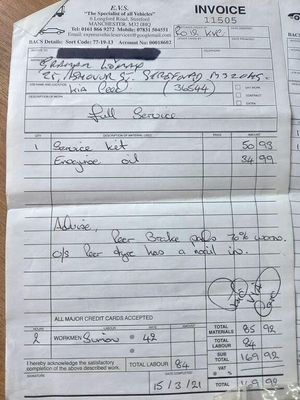 E.V.S.
"The Specialist of all Vehicles"
6 Longford Road, Stretford
MANCHESTER, M32
Tel: 0161 866 9272 Mobile: 07831 504551
BACS Details: Sort Code: 77-19-13 Account No: 00018602
INVOICE
11505
INVOICE TO
TELEPHONE
ST. STRETFORD
JOB NAME AND LOCATION
Kia Ceed (36544)
DAY WORK
CONTRACT
EXTRA
Full Service
QTY DESCRIPTION OF MATERIAL USED PRICE AMOUNT
1 Service kit 50 93
Engine oil 34 99
Advise,
Rear Brake pads 70% worn.
o/s Rear tyre has a nail in.
ALL MAJOR CREDIT CARDS ACCEPTED
HOURS LABOUR AMOUNT
2 WORKMEN Simon @ 42
@
I hereby acknowledge the satisfactory
completion of the above described work.
TOTAL LABOUR 84
SIGNATURE
DATE COMPLETED
15/3/21
TOTAL MATERIALS 85 92
TOTAL LABOUR 84
SUB TOTAL 169 92
VAT
TOTAL 169 92